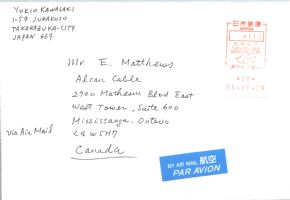 YUKIO KAWASAKI
1-59 JURAKUSO
TAKARAZUKA-CITY
JAPAN 669
日本郵便
NIPPON
Mr. E. Matthews
Alcan Cable
2700 Matheson Blvd East
West Tower, Suite 600
Mississauga, Ontario
L4W5H7
Canada
via Air Mail
BY AIR MAIL 航空
PAR AVION